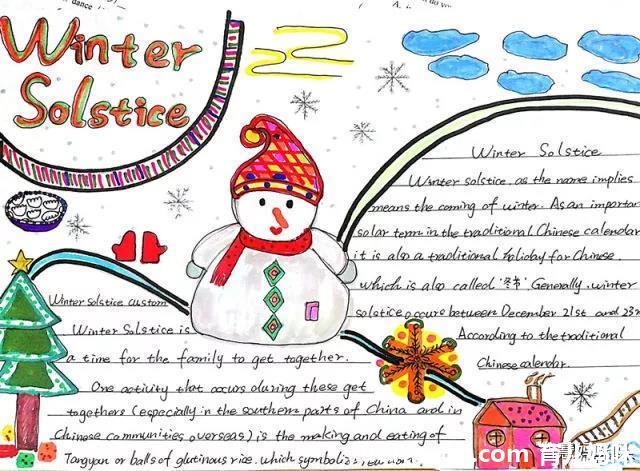 Winter
Solstice
Winter Solstice
Winter solstice, as the name implies
means the coming of winter. As an importan
solar term in the traditional Chinese calendar
it is also a traditional holiday for Chinese.
which is also called "冬节". Generally, winter
solstice occurs between December 21st and 23r
According to the traditional
Chinese calendar.
Winter solstice custom
Winter Solstice is
a time for the family to get together.
One activity that occurs during these get
togethers (especially in the southern parts of China and in
Chinese communities overseas) is the making and eating of
Tangyuan or balls of glutinous rice, which symbolis